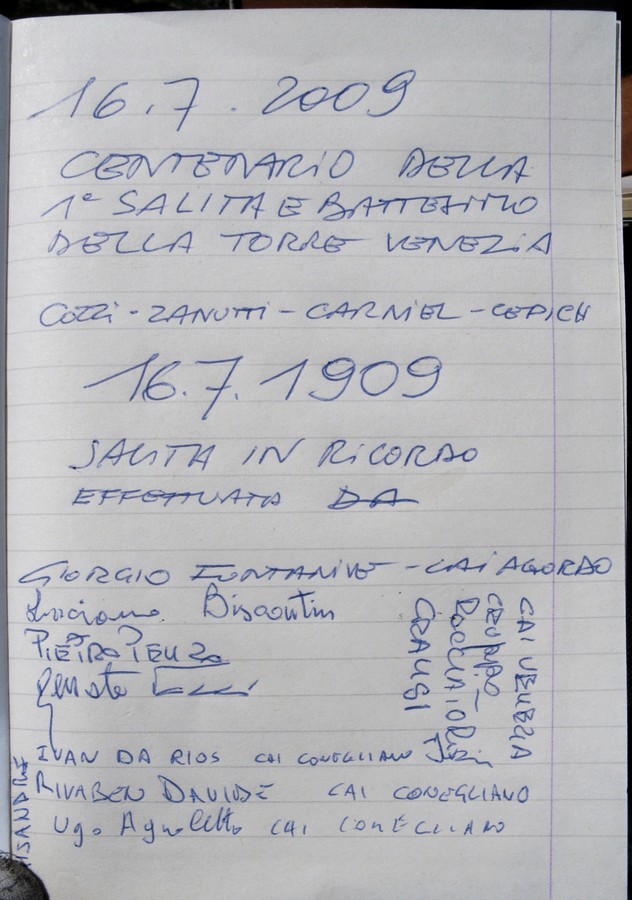 16.7.2009
CENTENARIO DELLA
1ª SALITA E BATTESIMO
DELLA TORRE VENEZIA
COZZI - ZANUTTI - CARNIEL - CEPICH
16.7.1909
SALITA IN RICORDO
EFFETTUATA DA
GIORGIO FONTANIVE - CAI AGORDO
Luciano Biscontin
PIETRO
Renato
CAI VENEZIA
GRUPPO
ROCCIATORI
GRANSI
IVAN DA RIOS CAI CONEGLIANO
RIVABEN DAVIDE CAI CONEGLIANO
Ugo Agnoletto CAI CONEGLIANO